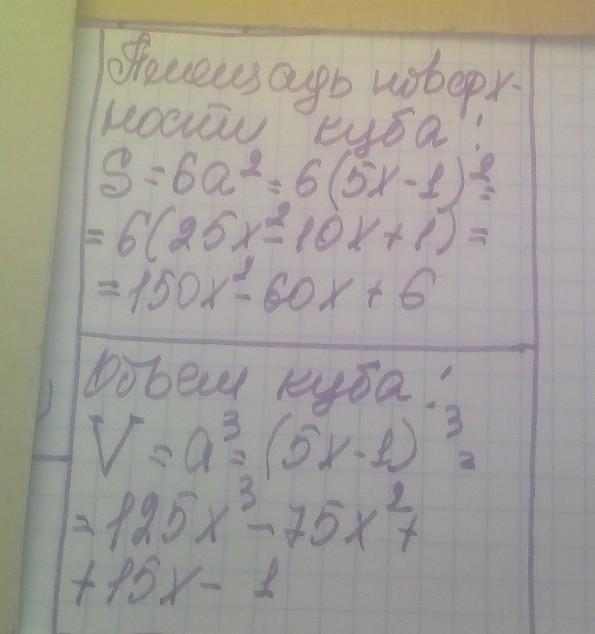 Площадь поверх-
ности куба:
S=6a²=6(5x-1)²=
=6(25x²-10x+1)=
=150x²-60x+6
Объем куба:
V=a³=(5x-1)³=
=125x³-75x²+
+15x-1